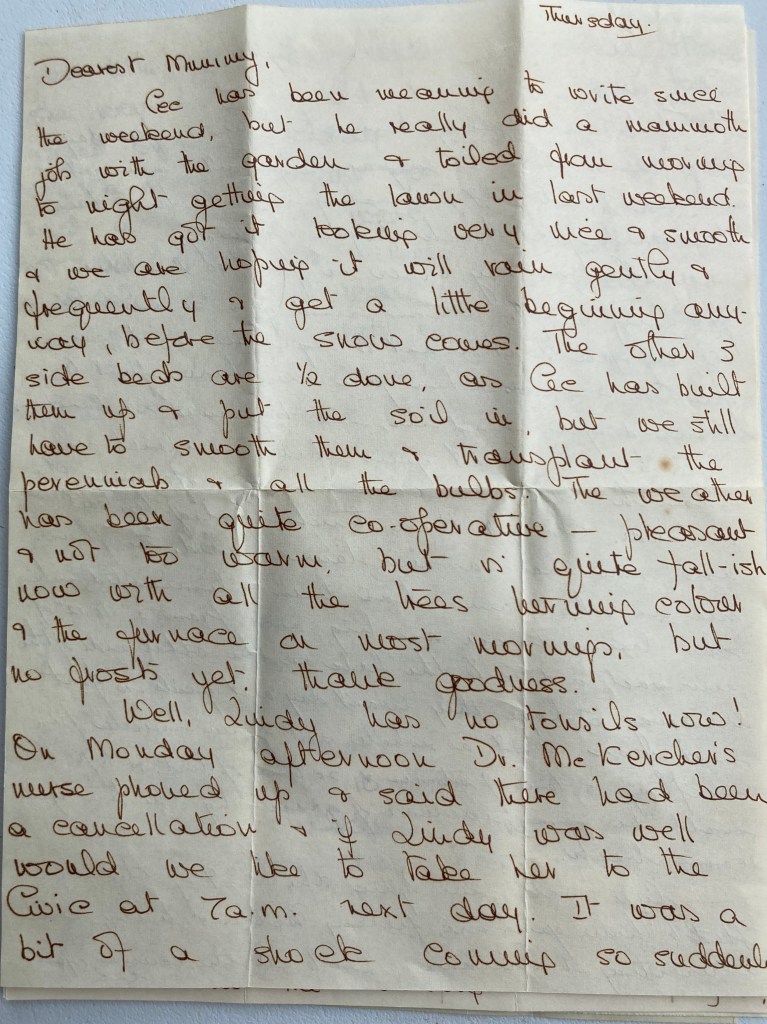 Thursday.
Dearest Mummy,
Cec has been meaning to write since
the weekend, but he really did a mammoth
job with the garden & toiled from morning
to night getting the lawn in last weekend.
He has got it looking very nice & smooth
& we are hoping it will rain gently &
frequently & get a little beginning any-
way, before the snow comes. The other 3
side beds are ½ done, as Cec has built
them up & put the soil in, but we still
have to smooth them & transplant the
perennials & all the bulbs. The weather
has been quite co-operative – pleasant
& not too warm, but is quite fall-ish
now with all the trees turning colour
& the furnace on most mornings, but
no frosts yet, thank goodness.
Well, Lindy has no tonsils now!
On Monday afternoon Dr. McKercher's
nurse phoned up & said there had been
a cancellation & if Lindy was well
would we like to take her to the
Civic at 7a.m. next day. It was a
bit of a shock coming so suddenly